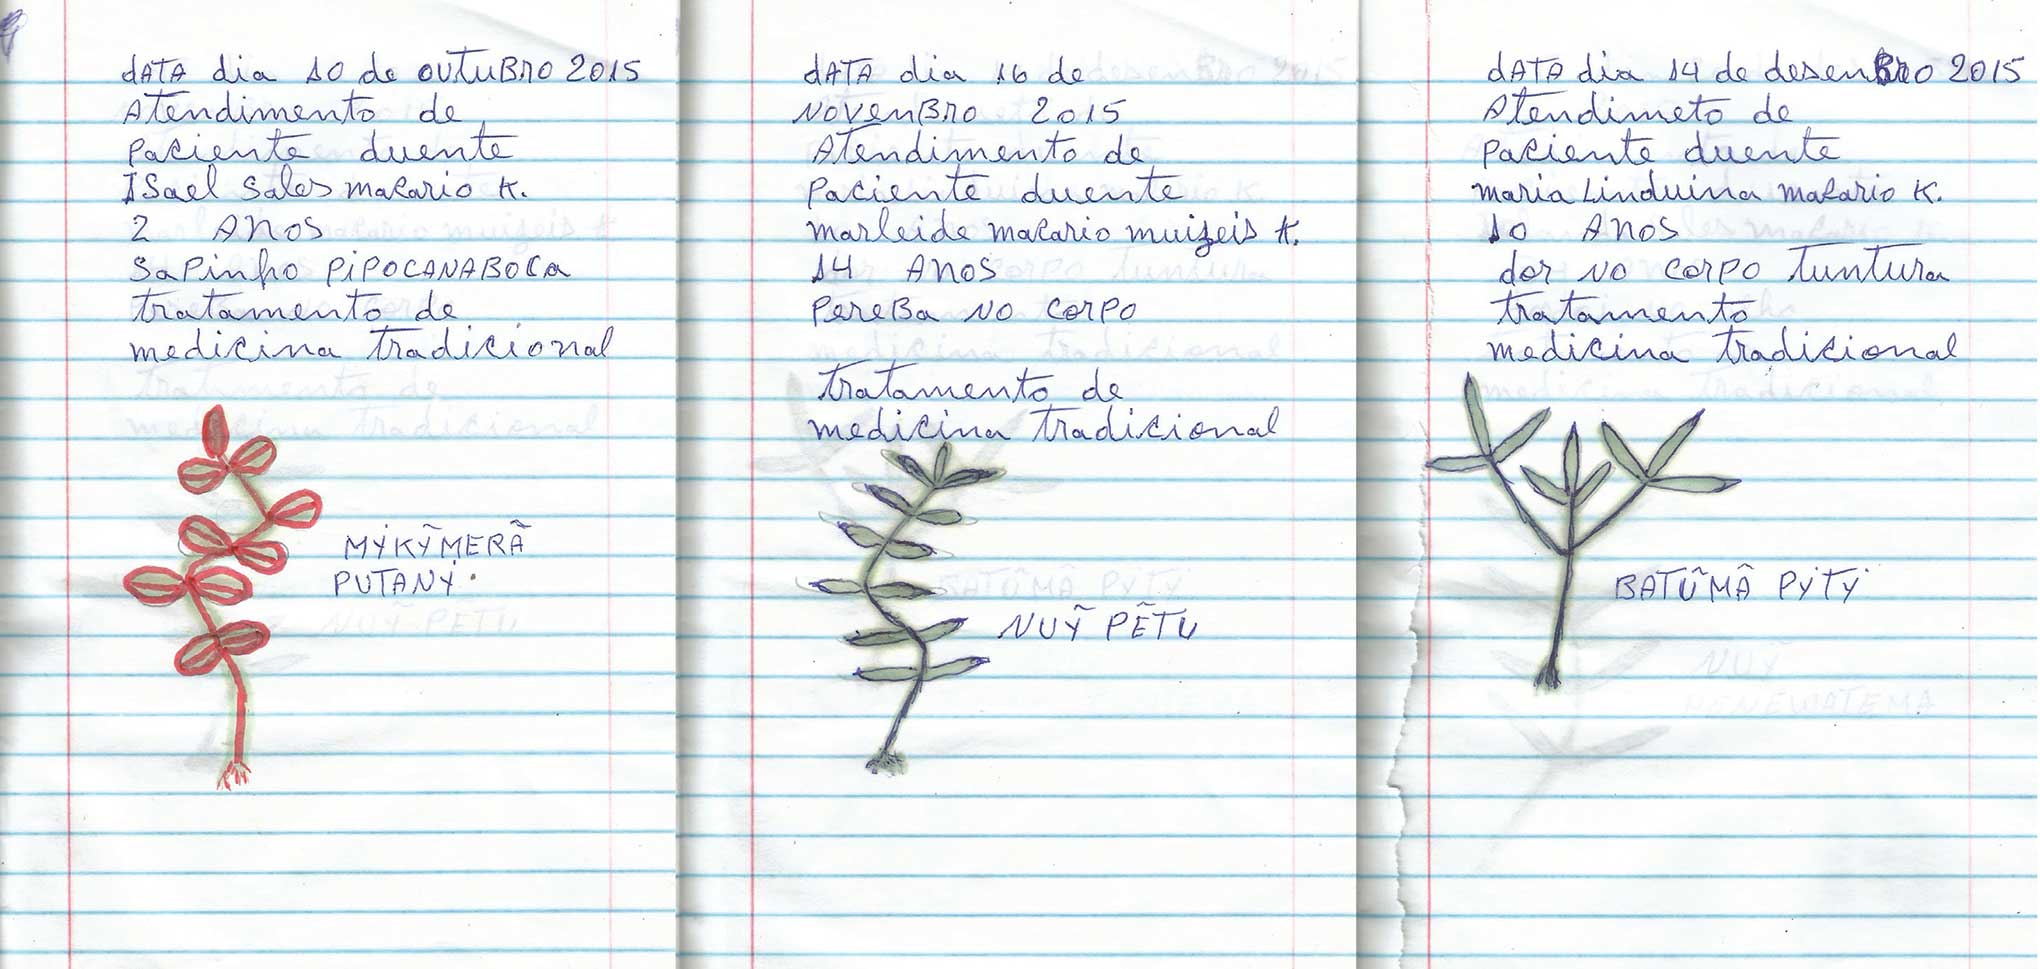 dATA dia 10 de OUTUBRO 2015
Atendimento de
paciente duente
ISael Sales macario K.
2 ANOS
SaPinho PiPOCANABOCa
tratamento de
medicina tradicional
MYKỸMERÃ
PUTANY.
dATA dia 16 de
NOVENBRO 2015
Atendimento de
paciente duente
marleide macario muizeis K.
14 ANOS
PereBa NO CORPO
tratamento de
medicina tradicional
NUỸ PẼTU
dATA dia 14 de desenBRO 2015
Atendimeto de
paciente duente
maria Linduina macario K.
10 ANOS
dor NO CORPO TUNTURa
tratamento
medicina tradicional
BATÛMÂ PYTY